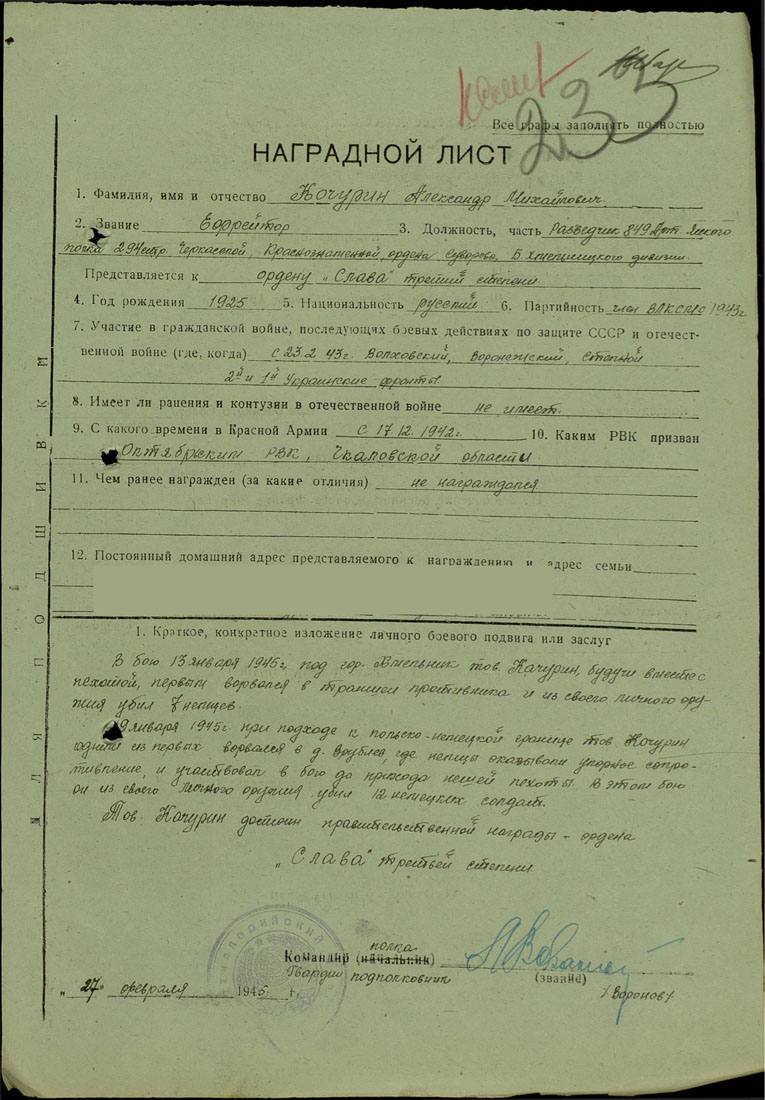 233
Все графы заполнять полностью
НАГРАДНОЙ ЛИСТ
1. Фамилия, имя и отчество Кочурин Александр Михайлович.
2. Звание Ефрейтор 3. Должность, часть Разведчик 849 Арт. -ского
полка 294 стр. Черкасской, Краснознаменной, ордена Суворова, Б. Хмельницкого дивизии.
Представляется к ордену „Слава" третий степени
4. Год рождения 1925 5. Национальность русский 6. Партийность член ВЛКСМ с 1943г
7. Участие в гражданской войне, последующих боевых действиях по защите СССР и отечест-
венной войне (где, когда) с 23.2 43г. Волховский, Воронежский, Степной
2й и 1й Украинские фронты.
8. Имеет ли ранения и контузии в отечественной войне не имеет.
9. С какого времени в Красной Армии с 17.12.1942г. 10. Каким РВК призван
Октябрьским РВК, Чкаловской области
11. Чем ранее награжден (за какие отличия) не награждался
12. Постоянный домашний адрес представляемого к награждению и адрес семьи
1. Краткое, конкретное изложение личного боевого подвига или заслуг
В бою 13 января 1945г. под гор. Хмельник тов. Качурин, будучи вместе с
пехотой, первым ворвался в траншеи противника и из своего личного ору-
жия убил 7 немцев.
19 января 1945г. при подходе к польско-немецкой границе тов. Кочурин
одним из первых ворвался в д. Врублев, где немцы оказывали упорное сопро-
тивление, и участвовал в бою до прихода нашей пехоты. В этом бою
он из своего личного оружия убил 12 немецких солдат.
Тов. Качурин достоин правительственной награды – ордена
„Слава" третьей степени
Командир (начальник) полка
Гвардии подполковник
(звание)
/Воронов/
„27" февраля 1945 г.
ДЛЯ ПОДШИВКИ